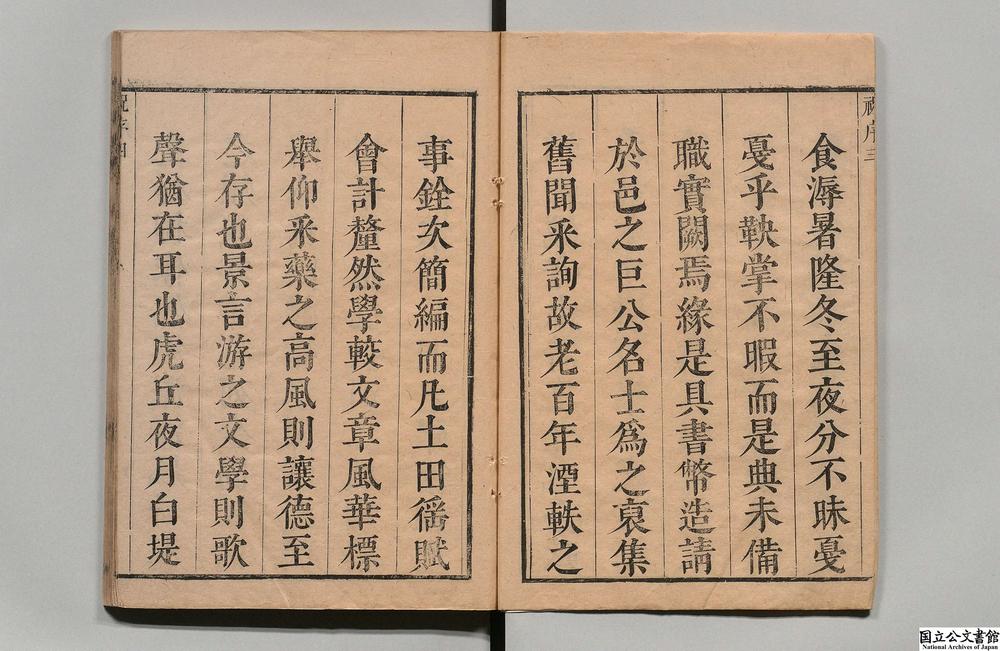 食溽暑隆冬至夜分不昧戞
戞乎鞅掌不暇而是典未備
職實闕焉緣是具書幣造請
於邑之巨公名士爲之裒集
舊聞采詢故老百年湮軼之
事銓次簡編而凡土田徭賦
會計釐然學較文章風華標
舉仰采藥之高風則讓德至
今存也景言游之文學則歌
聲猶在耳也虎丘夜月白堤
序三
序四
国立公文書館
National Archives of Japan